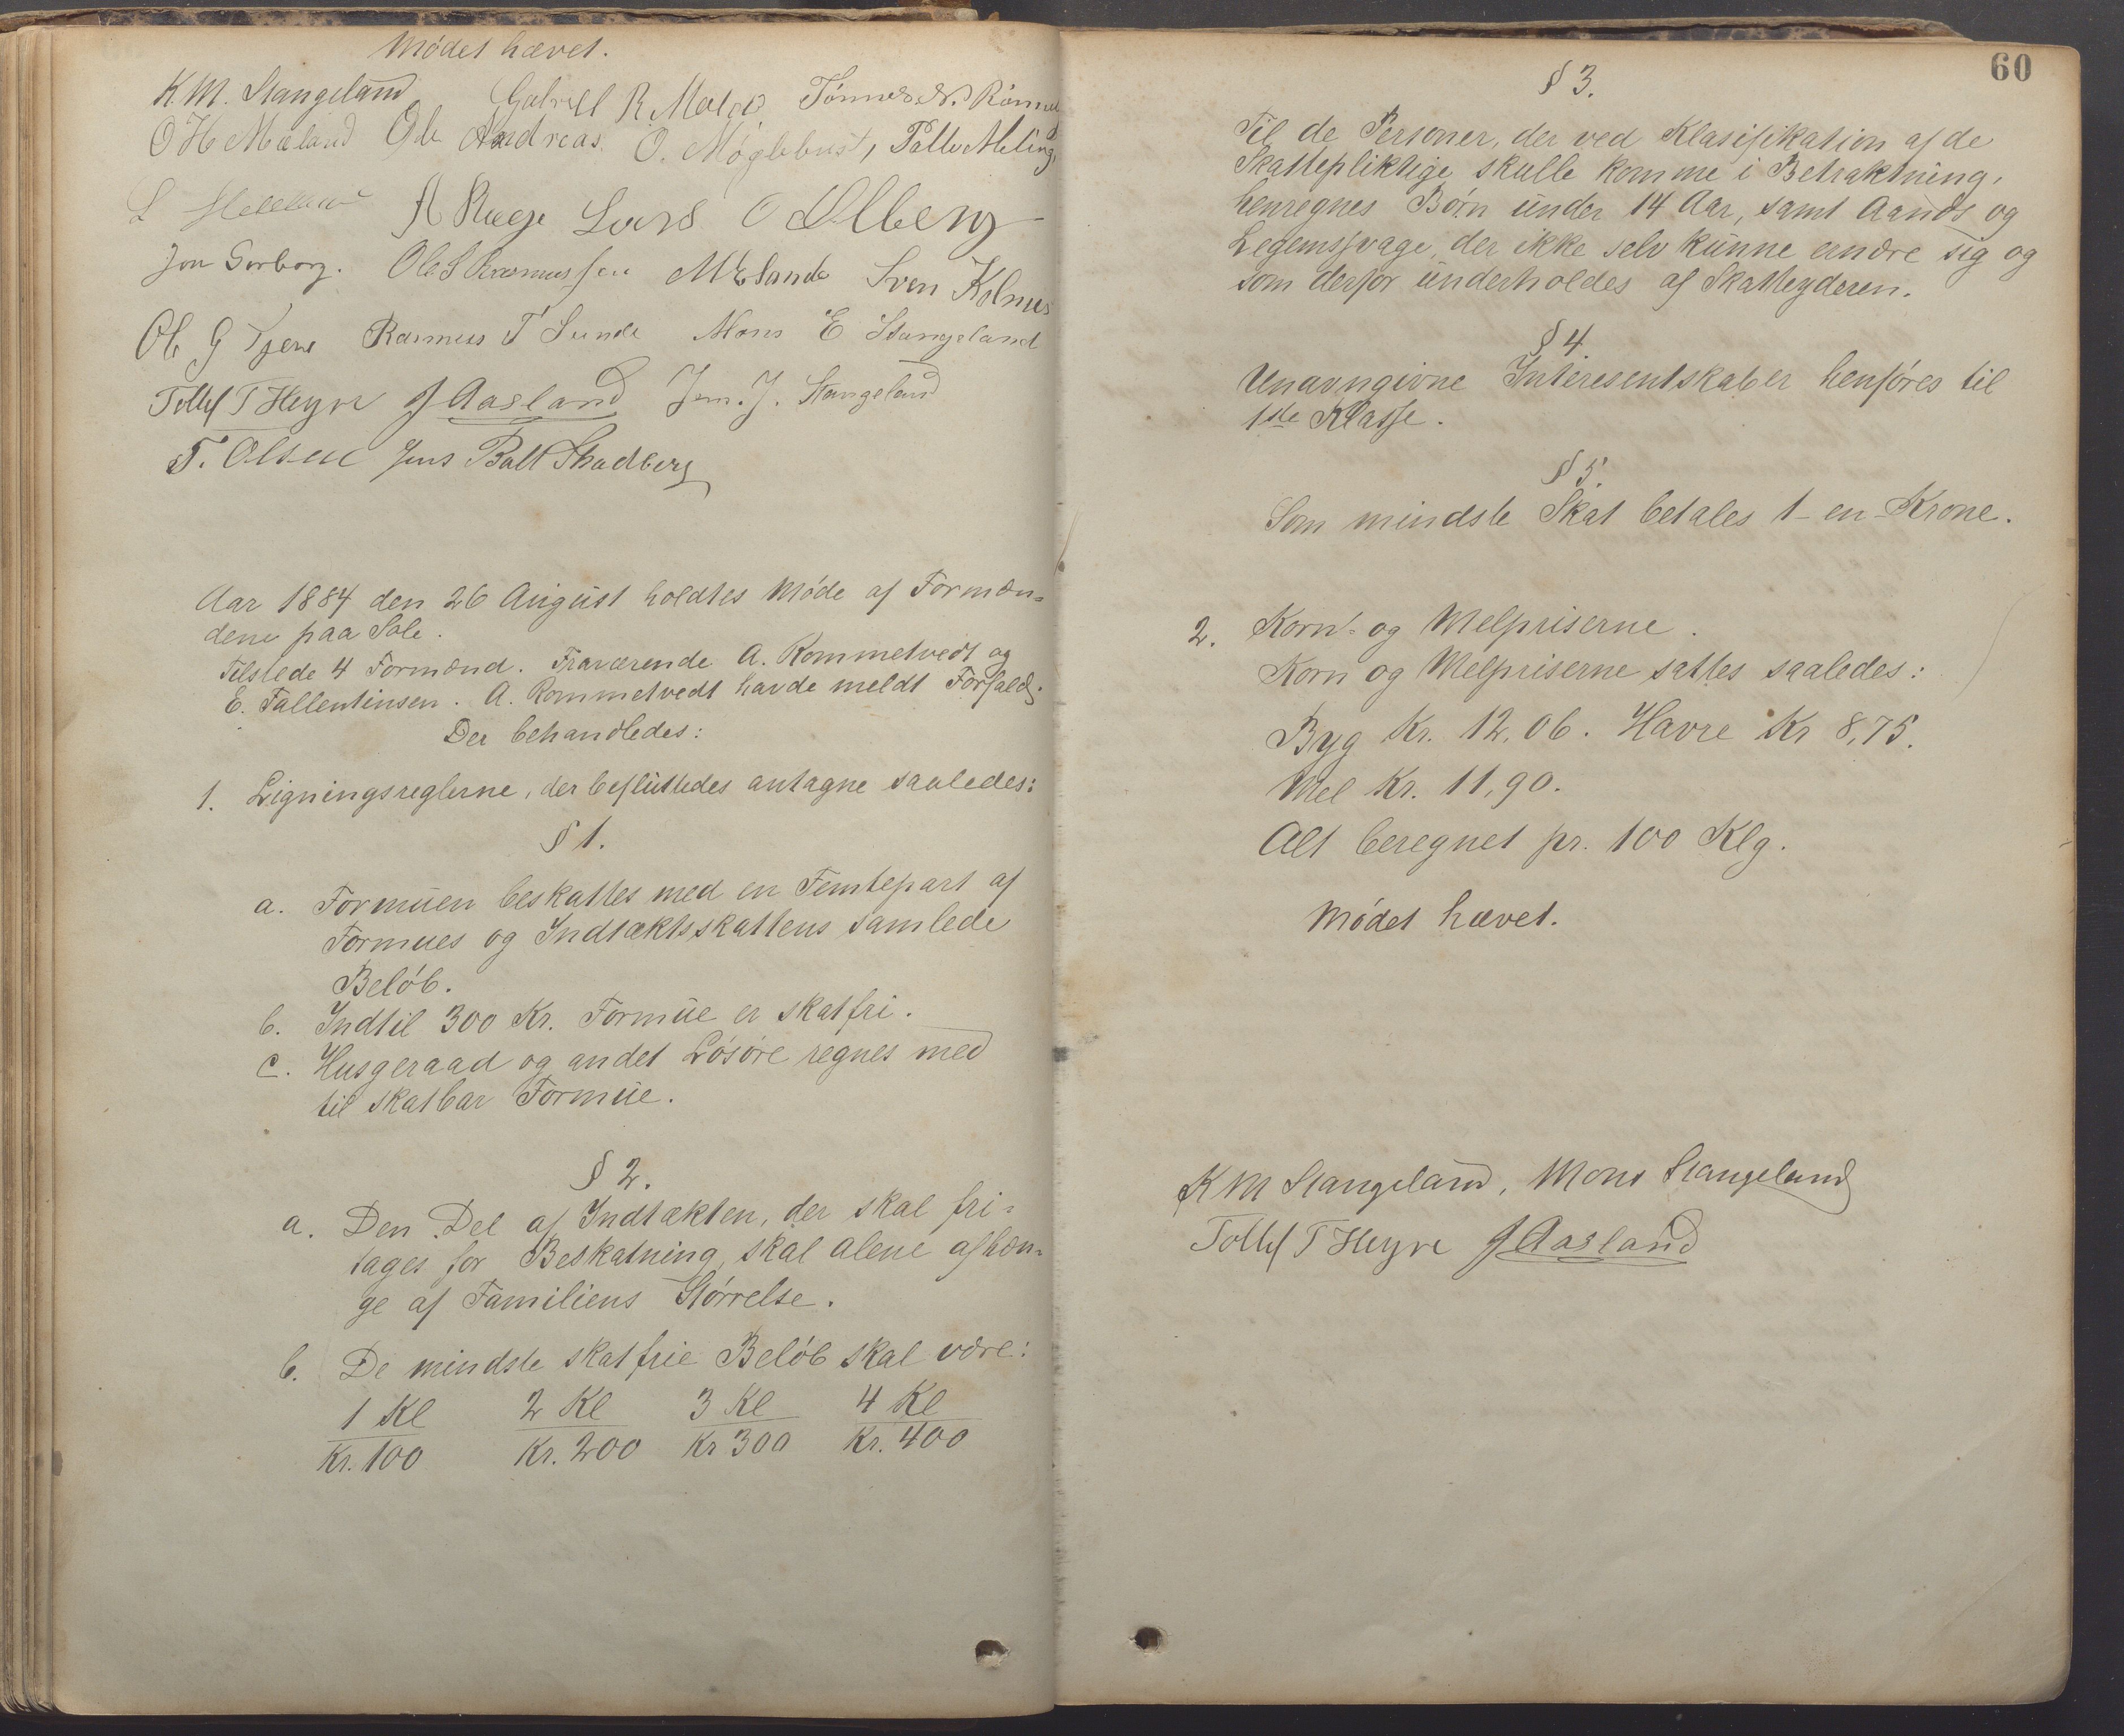 Mødet hævet.
K M. Stangeland Gabriel R. Mæle, Tønnes N.
O H Meland Ole Andreas. O. Møglebust, Palle Meling,
A Rege Lars O Olberg
Jon Sørborg. Ole S Rasmussen M E Sande Sven Kolnes
Ole G Tjene Rasmus T Sunde Mons E Stangeland
Tollef T Heyre J Aasland J. Stangeland
T. Olsen Jens Balt Skadberg
Aar 1884 den 26 August holdtes Møde af Formæn=
dene paa Sole.
Tilstede 4 Formænd. Fraværende A. Rommetvedt og
E. Fallentinsen. A. Rommetvedt havde meldt Forfald.
Der behandledes:
1. Ligningsreglerne, der besluttedes antagne saaledes:
§ 1.
a. Formuen beskattes med en Femtepart af
Formues og Indtæktsskattens samlede
Beløb.
b. Indtil 300 Kr. Formue er skatfri.
c. Husgeraad og andet Løsøre regnes med
til skatbar Formue.
§ 2.
a. Den Del af Indtækten, der skal fri=
tages for Beskatning, skal alene afhæn=
ge af Familiens Størrelse.
b. De mindste skatfrie Beløb skal være:
1 Kl 2 Kl 3 Kl 4 Kl
Kr. 100 Kr. 200 Kr 300 Kr. 400
60
§ 3.
Til de Personer, der ved Klasifikation af de
Skattepliktige skulle komme i Betraktning,
henregnes Børn under 14 Aar, samt Aands og
Legemssvage, der ikke selv kunne ernære sig og
som derfor underholdes af Skatteyderen.
§ 4.
Unavngivne Interesentskaber henføres til
1ste Klasse.
§ 5.
Som mindste Skat betales 1 - en - Krone.
2. Korn- og Melpriserne.
Korn og Melpriserne sattes saaledes:
Byg Kr. 12,06. Havre Kr 8,75.
Mel Kr. 11,90.
Alt beregnet pr. 100 Klg.
Mødet hævet.
K M Stangeland, Mons Stangeland
Tollef T Heyre J Aasland